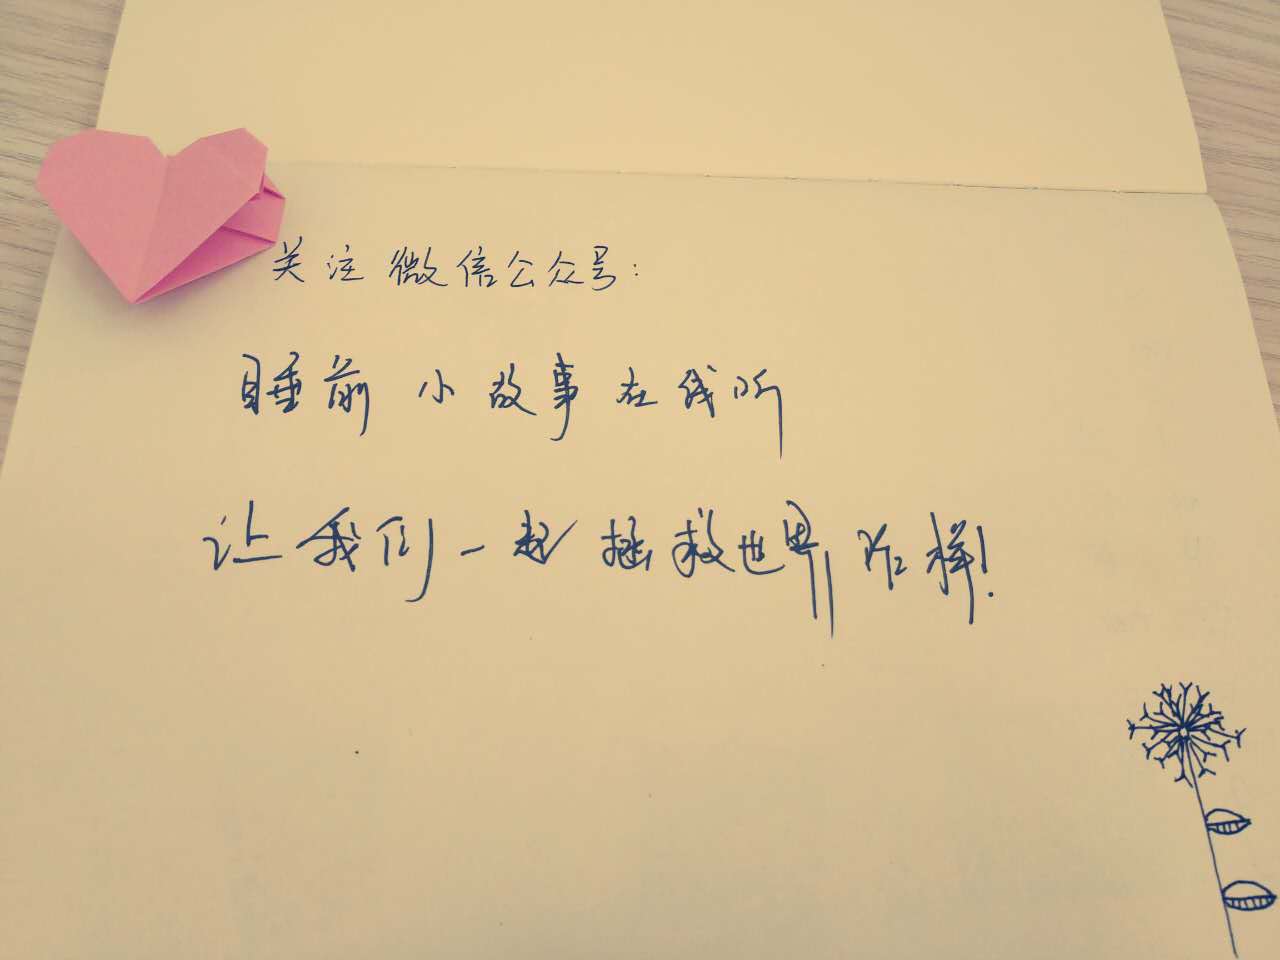 关注微信公众号:
睡前小故事在线听
让我们一起拯救世界咋样!